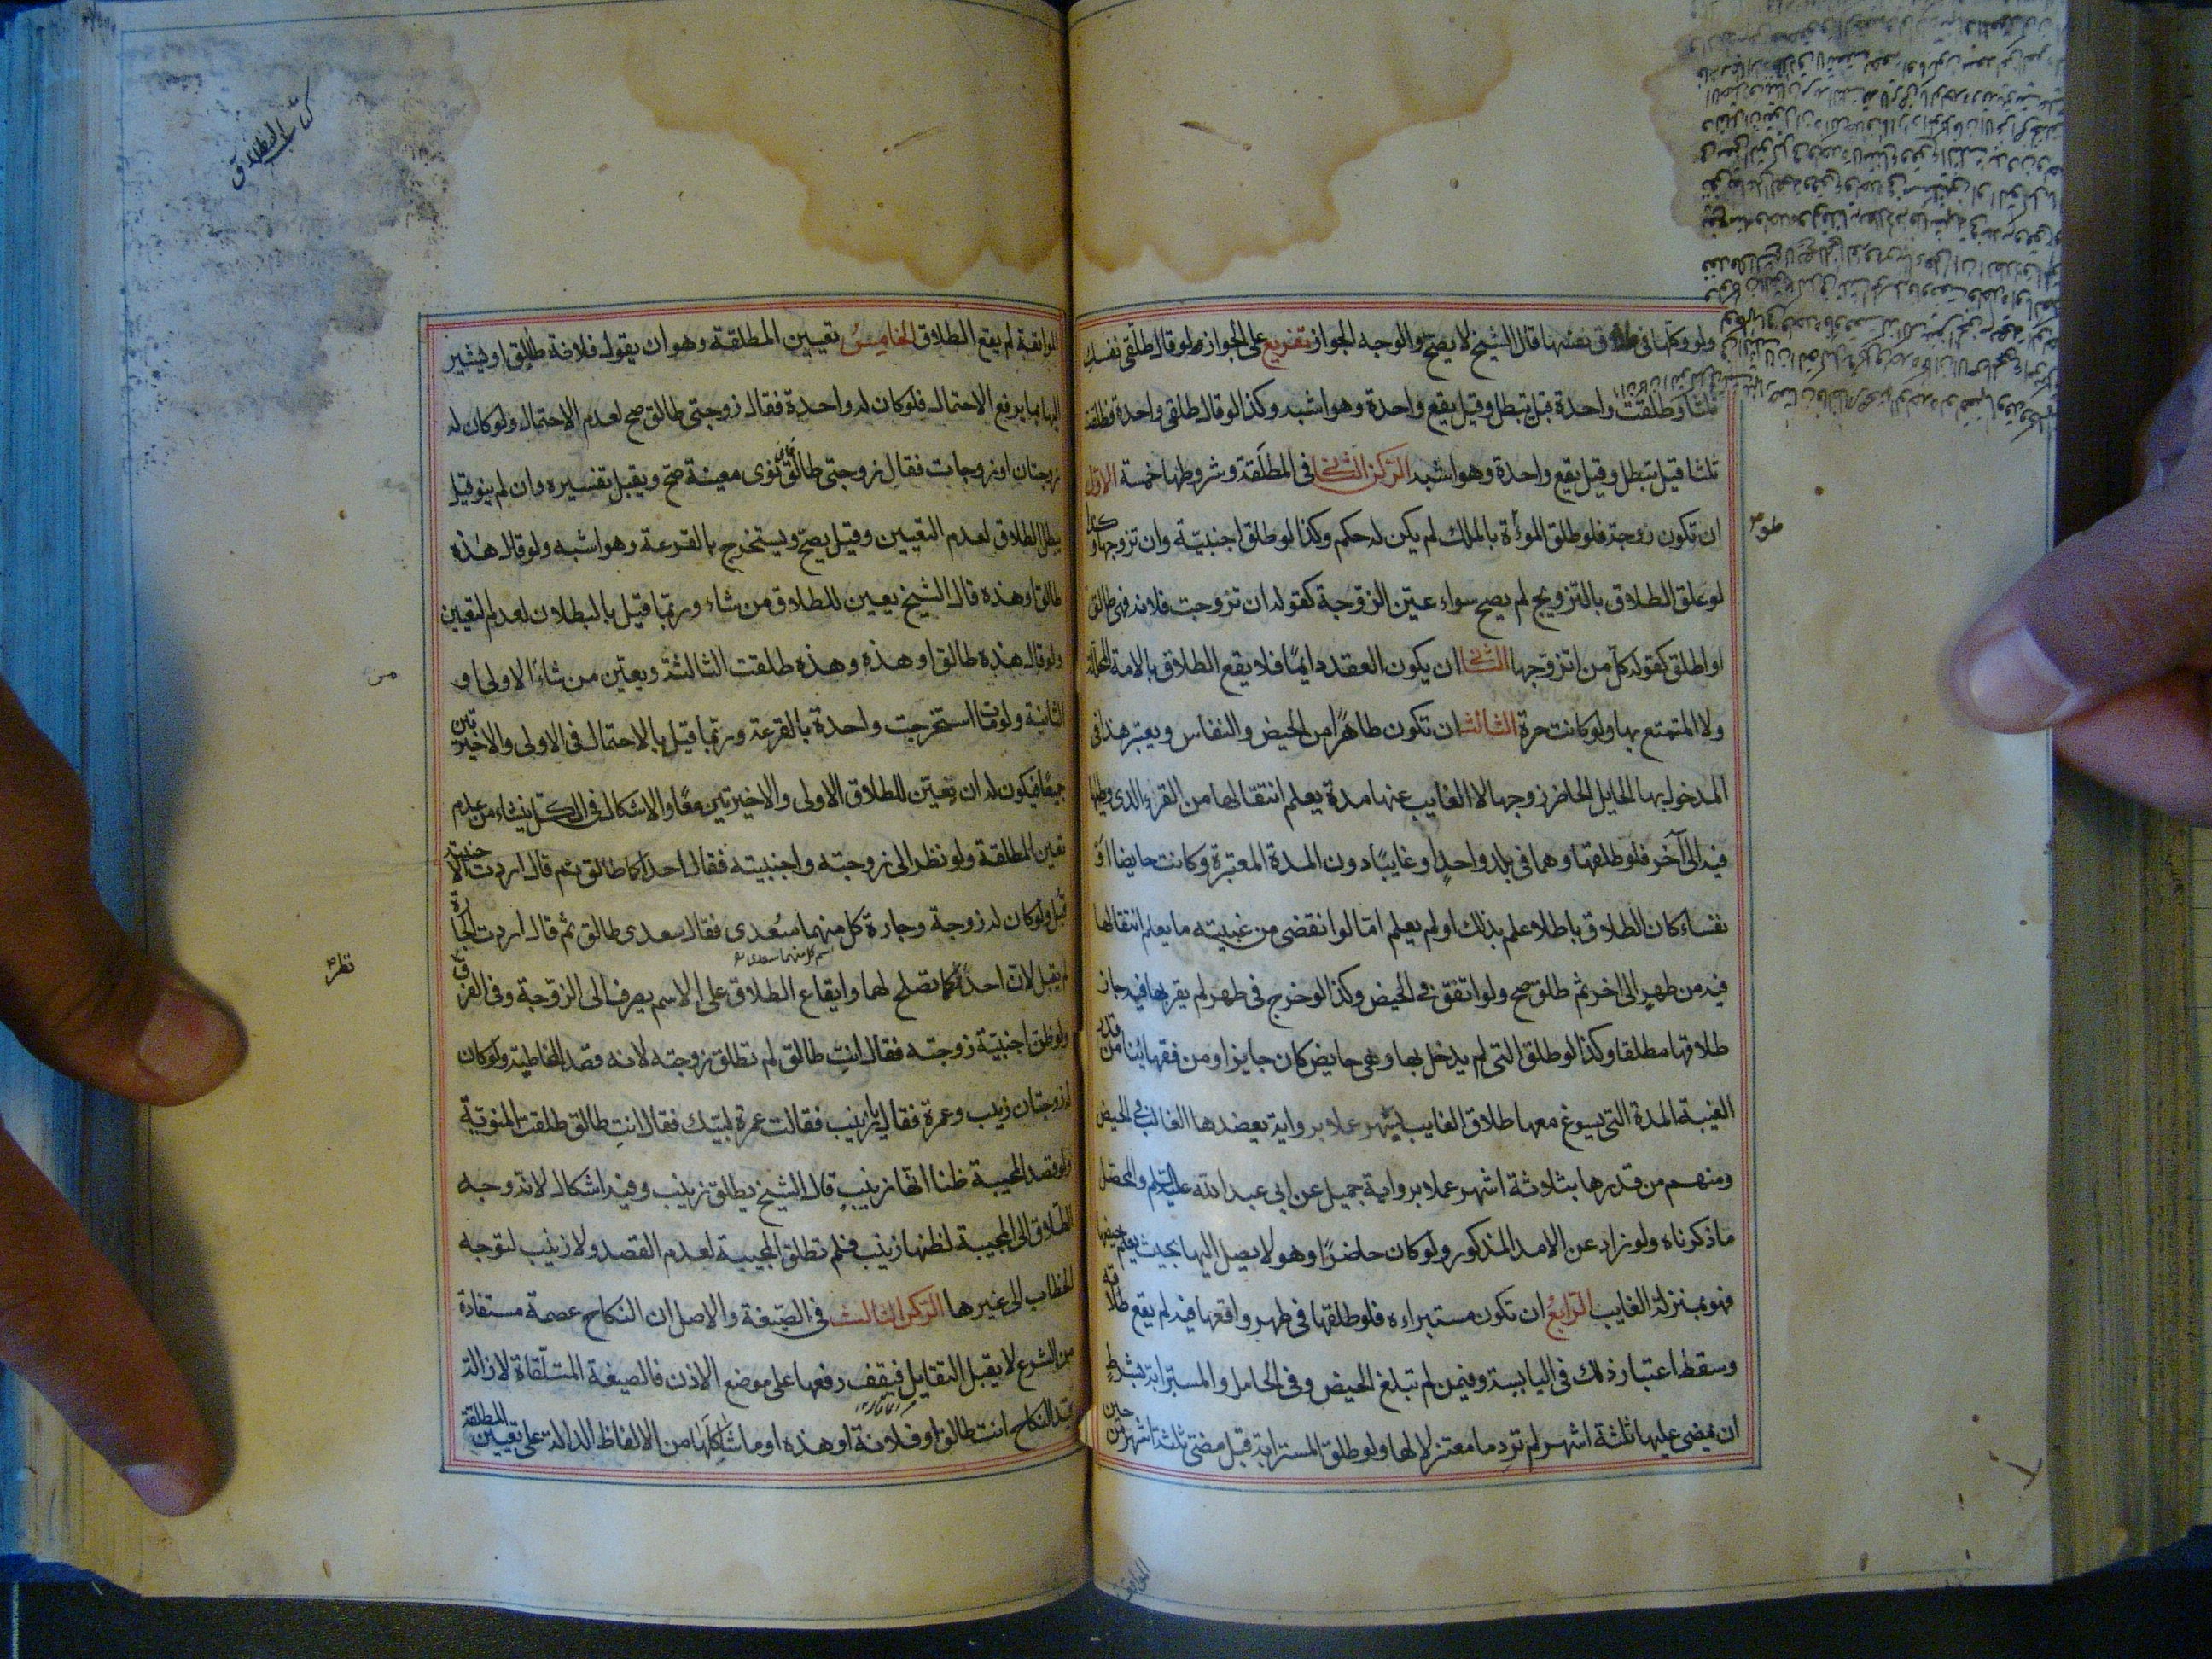 ولو وكلها فى طلاق نفسها قال الشيخ لا يصح والوجه الجواز تفريع على الجواز لو قال طلقى نفسك
ثلثا فطلقت واحدة قيل تبطل وقيل يقع واحدة وهو اشبه وكذا لو قال طلقى واحدة فطلقت
ثلثا قيل تبطل وقيل يقع واحدة وهو اشبه الركن الثانى فى المطلقة وشروطها خمسة الاول
ان تكون زوجة فلو طلق الموطؤة بالملك لم يكن له حكم وكذا لو طلق اجنبية وان تزوجها وكذا
لو علق الطلاق بالتزويج لم يصح سواء عين الزوجة كقوله ان تزوجت فلانة فهى طالق
او اطلق كقوله كل من اتزوجها الثانى ان يكون العقد دايمًا فلا يقع الطلاق بالامة المحللة
ولا المتمتع بها ولو كانت حرة الثالث ان تكون طاهرًا من الحيض والنفاس ويعتبر هذا فى
المدخول بها الحايل الحاضر زوجها لا الغايب عنها مدة يعلم انتقالها من القرء الذى وطيها
فيه الى آخر فلو طلقها وهما فى بلد واحدٍ او غايبًا دون المدة المعتبرة وكانت حايضا او
نفساء كان الطلاق باطلا علم بذلك او لم يعلم امّا لو انقضى من غيبته ما يعلم انتقالها
فيه من طهرٍ الى اخر ثم طلق صح ولو اتفق فى الحيض وكذا لو خرج فى طهر لم يقربها فيه جاز
طلاقها مطلقا وكذا لو طلق التى لم يدخل بها وهى حايض كان جايزا ومن فقهائنا من قدر
الغيبة المدة التى يسوغ معها طلاق الغايب بشهر عملا برواية يعضدها الغالب فى الحيض
ومنهم من قدرها بثلاثة اشهر عملا برواية جميل عن ابى عبد الله عليه السلم والمحصل
ما ذكرناه ولو زاد عن الامد المذكور ولو كان حاضرًا وهو لا يصل اليها بحيث يعلم حيضها
فهو بمنزلة الغايب الرابع ان تكون مستبراءه فلو طلقها فى طهر واقعها فيه لم يقع طلاقه
وسقط اعتبار ذلك فى اليايسة وفيمن لم تبلغ الحيض وفى الحامل والمسترابة بشرط
ان يمضى عليها ثلثة اشهر لم تر دما معتزلا لها ولو طلق المسترابة قبل مضى ثلثة اشهر من حين
المواقعة
كتاب الطلاق
المواقعة لم يقع الطلاق الخامس تعيين المطلقة وهو ان يقول فلانة طالق او يشير
اليها بما يرفع الاحتمال فلو كان له واحدة فقال زوجتى طالق صح لعدم الاحتمال ولو كان له
زوجتان او زوجات فقال زوجتى طالق فان نوى معينة صح ويقبل تفسيره وان لم ينو قيل
يبطل الطلاق لعدم التعيين وقيل يصح ويستخرج بالقرعة وهو اشبه ولو قال هذه
طالق او هذه قال الشيخ يعين للطلاق من شاء وربما قيل بالبطلان لعدم التعيين
ولو قال هذه طالق او هذه وهذه طلقت الثالثة ويعين من شاء الاولى او
الثانية ولو مات استخرجت واحدة بالقرعة وربما قيل بالاحتمال فى الاولى والاخيرتين
جميعًا فيكون له ان يعين للطلاق الاولى والاخيرتين معًا والاشكال فى الكل ينشاء من عدم
تعين المطلقة ولو نظر الى زوجته واجنبيته فقال احداكما طالق ثم قال اردت الاجنبية
قبل ولو كان له زوجة وجارة كل منهما سعدى فقال سعدى طالق ثم قال اردت الجارة
اسم كل منهما سعدى
لم يقبل لان احداكما تصلح لهما وايقاع الطلاق على الاسم يصرف الى الزوجة وفى الفرق
نظر
ولو ظن اجنبية زوجته فقال انت طالق لم تطلق زوجته لانه قصد المخاطبة ولو كان
له زوجتان زينب وعمرة فقال يا زينب فقالت عمرة لبيك فقال انت طالق طلقت المنوية
ولو قصد المجيبة ظنا انها زينب قال الشيخ يطلق زينب وفيه اشكال لانه وجه
الطلاق الى المجيبة لظنها زينب فلم تطلق المجيبة لعدم القصد ولا زينب لتوجه
الخطاب الى غيرها الركن الثالث فى الصيغة والاصل ان النكاح عصمة مستفادة
من الشرع لا يقبل التقايل فيقف رفعها على موضع الاذن فالصيغة المتلقاة لازالة
قيد النكاح انت طالق او فلانة او هذه او ما شاكلها من الالفاظ الدالة على تعيين المطلقة